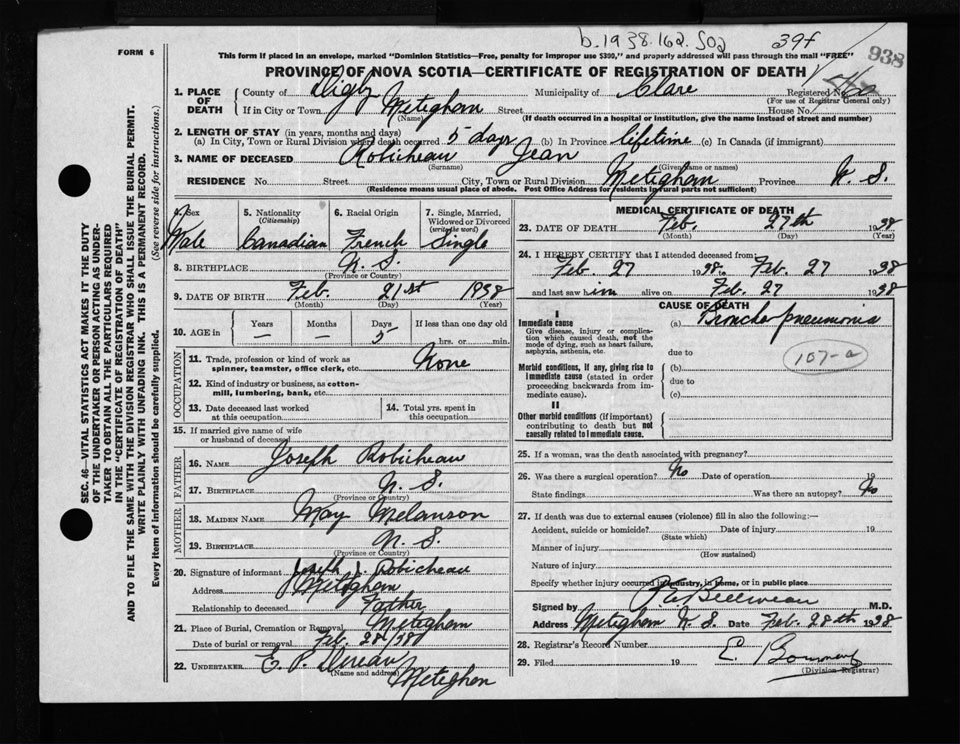 b.1938.162.502 39f
FORM 6
This form if placed in an envelope, marked "Dominion Statistics—Free, penalty for improper use $300," and properly addressed will pass through the mail "FREE"
938
PROVINCE OF NOVA SCOTIA—CERTIFICATE OF REGISTRATION OF DEATH
1. PLACE OF DEATH
County of Digby Municipality of Clare Registered No.
(For use of Registrar General only)
If in City or Town Meteghan Street House No.
(Name) (If death occurred in a hospital or institution, give the name instead of street and number)
2. LENGTH OF STAY (in years, months and days)
(a) In City, Town or Rural Division where death occurred 5 days (b) In Province lifetime (c) In Canada (if immigrant)
3. NAME OF DECEASED Robicheau Jean
(Surname) (Given name or names)
RESIDENCE No. Street City, Town or Rural Division Meteghan Province N. S.
(Residence means usual place of abode. Post Office Address for residents in rural parts not sufficient)
4. Sex 5. Nationality 6. Racial Origin 7. Single, Married,
(Citizenship) Widowed or Divorced
(write the word)
Male Canadian French Single
8. BIRTHPLACE N. S.
(Province or Country)
9. DATE OF BIRTH Feb. 21st 1938
(Month) (Day) (Year)
10. AGE in Years Months Days If less than one day old
— — 5 hrs. or min.
OCCUPATION
11. Trade, profession or kind of work as
spinner, teamster, office clerk, etc. None
12. Kind of industry or business, as cotton-
mill, lumbering, bank, etc.
13. Date deceased last worked
at this occupation
14. Total yrs. spent in
this occupation
15. If married give name of wife
or husband of deceased
FATHER
16. NAME Joseph Robicheau
17. BIRTHPLACE N. S.
(Province or Country)
MOTHER
18. MAIDEN NAME May Melanson
19. BIRTHPLACE N. S.
(Province or Country)
20. Signature of informant Joseph J. Robicheau
Address Meteghan
Relationship to deceased Father
21. Place of Burial, Cremation or Removal Meteghan
Date of burial or removal Feb. 28/38
22. UNDERTAKER E. P.
(Name and address) Meteghan
MEDICAL CERTIFICATE OF DEATH
23. DATE OF DEATH Feb. 27th 1938
(Month) (Day) (Year)
24. I HEREBY CERTIFY that I attended deceased from:
Feb. 27 1938 to Feb. 27 1938
and last saw him alive on Feb. 27 1938
CAUSE OF DEATH
I
Immediate cause (a) Broncho pneumonia
Give disease, injury or complica-
tion which caused death, not the
mode of dying, such as heart failure,
asphyxia, asthenia, etc.
due to
107-a
Morbid conditions, if any, giving rise to
immediate cause (stated in order
proceeding backwards from im-
mediate cause).
(b)
due to
(c)
II
Other morbid conditions (if important)
contributing to death but not
causally related to immediate cause.
25. If a woman, was the death associated with pregnancy?
26. Was there a surgical operation? No Date of operation 19
State findings Was there an autopsy? No
27. If death was due to external causes (violence) fill in also the following:—
Accident, suicide or homicide? Date of injury 19
(State which)
Manner of injury
(How sustained)
Nature of injury
Specify whether injury occurred in industry, in home, or in public place
Signed by M.D.
Address Meteghan N. S. Date Feb. 28th 1938
28. Registrar's Record Number
29. Filed 19 E.
(Division Registrar)
SEC. 46—VITAL STATISTICS ACT MAKES IT THE DUTY
OF THE UNDERTAKER OR PERSON ACTING AS UNDER-
TAKER TO OBTAIN ALL THE PARTICULARS REQUIRED
IN THE "CERTIFICATE OF REGISTRATION OF DEATH"
AND TO FILE THE SAME WITH THE DIVISION REGISTRAR WHO SHALL ISSUE THE BURIAL PERMIT.
WRITE PLAINLY WITH UNFADING INK. THIS IS A PERMANENT RECORD.
Every item of information should be carefully supplied. (See reverse side for instructions.)